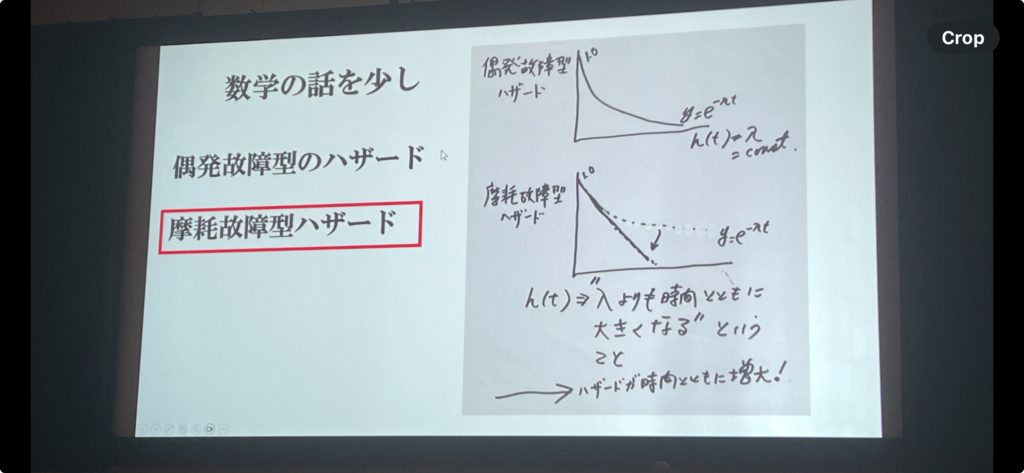 Crop
数学の話を少し
偶発故障型のハザード
摩耗故障型ハザード
偶発故障型
ハザード
1.0
y=e^-λt
h(t)=λ
=const.
摩耗故障型
ハザード
1.0
y=e^-λt
h(t)⇒"λよりも時間とともに
大きくなる"という
こと
→ハザードが時間とともに増大!